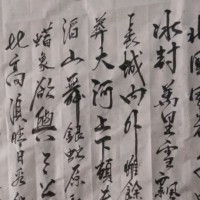 北國風
冰封萬里雪飄
長城內外惟餘
莽大河上下頓失
滔山舞銀蛇原
蜡象欲與天公
比高須晴日看